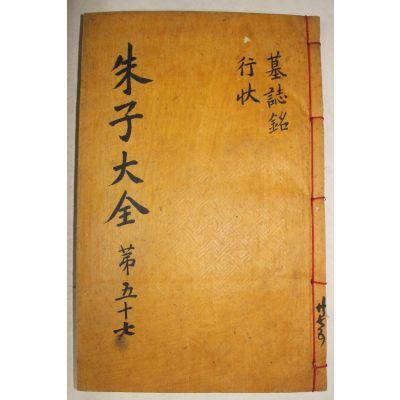 墓誌銘
行状
朱子大全 第五十七